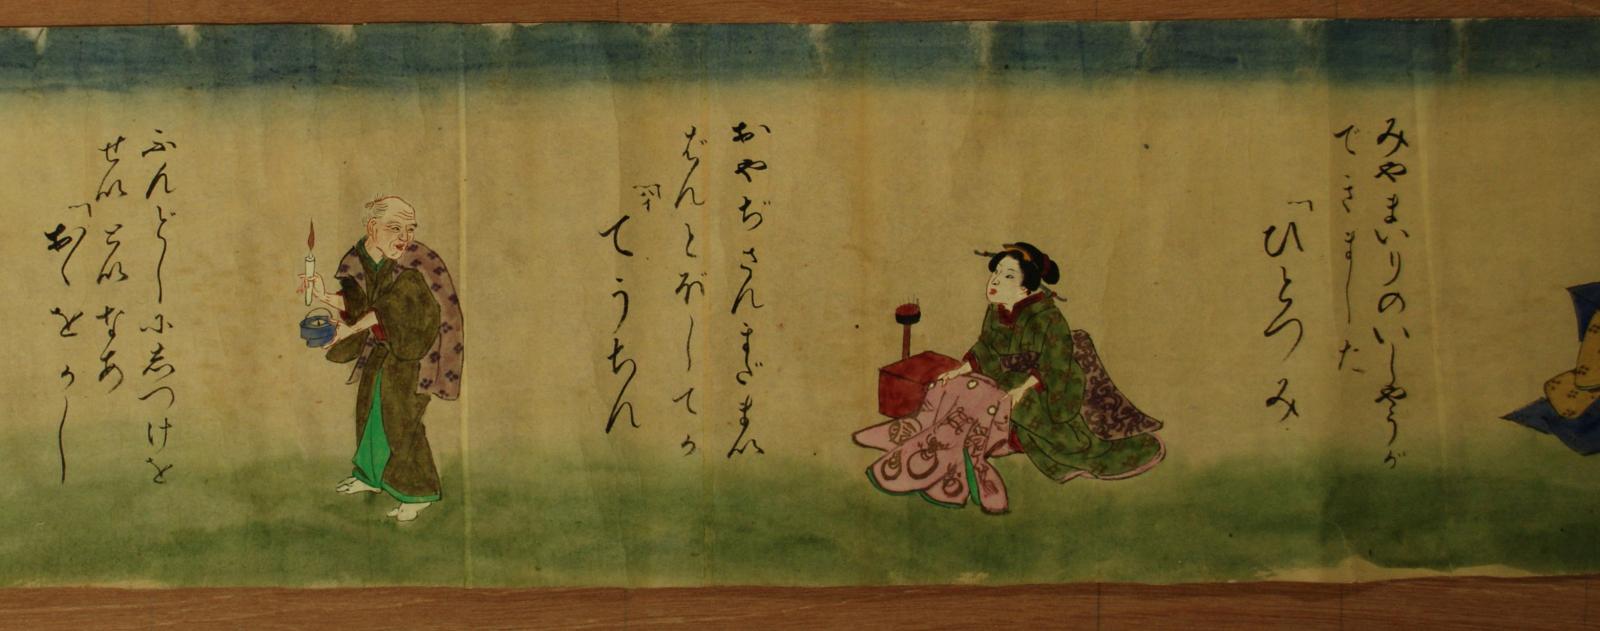 みやまいりのいしやうが
できました
「ひとつみ
おやぢさんまだまい
ばんとぼしてか
てうちん
ふんどしにしつけを
せいといなあ
「おくをかし